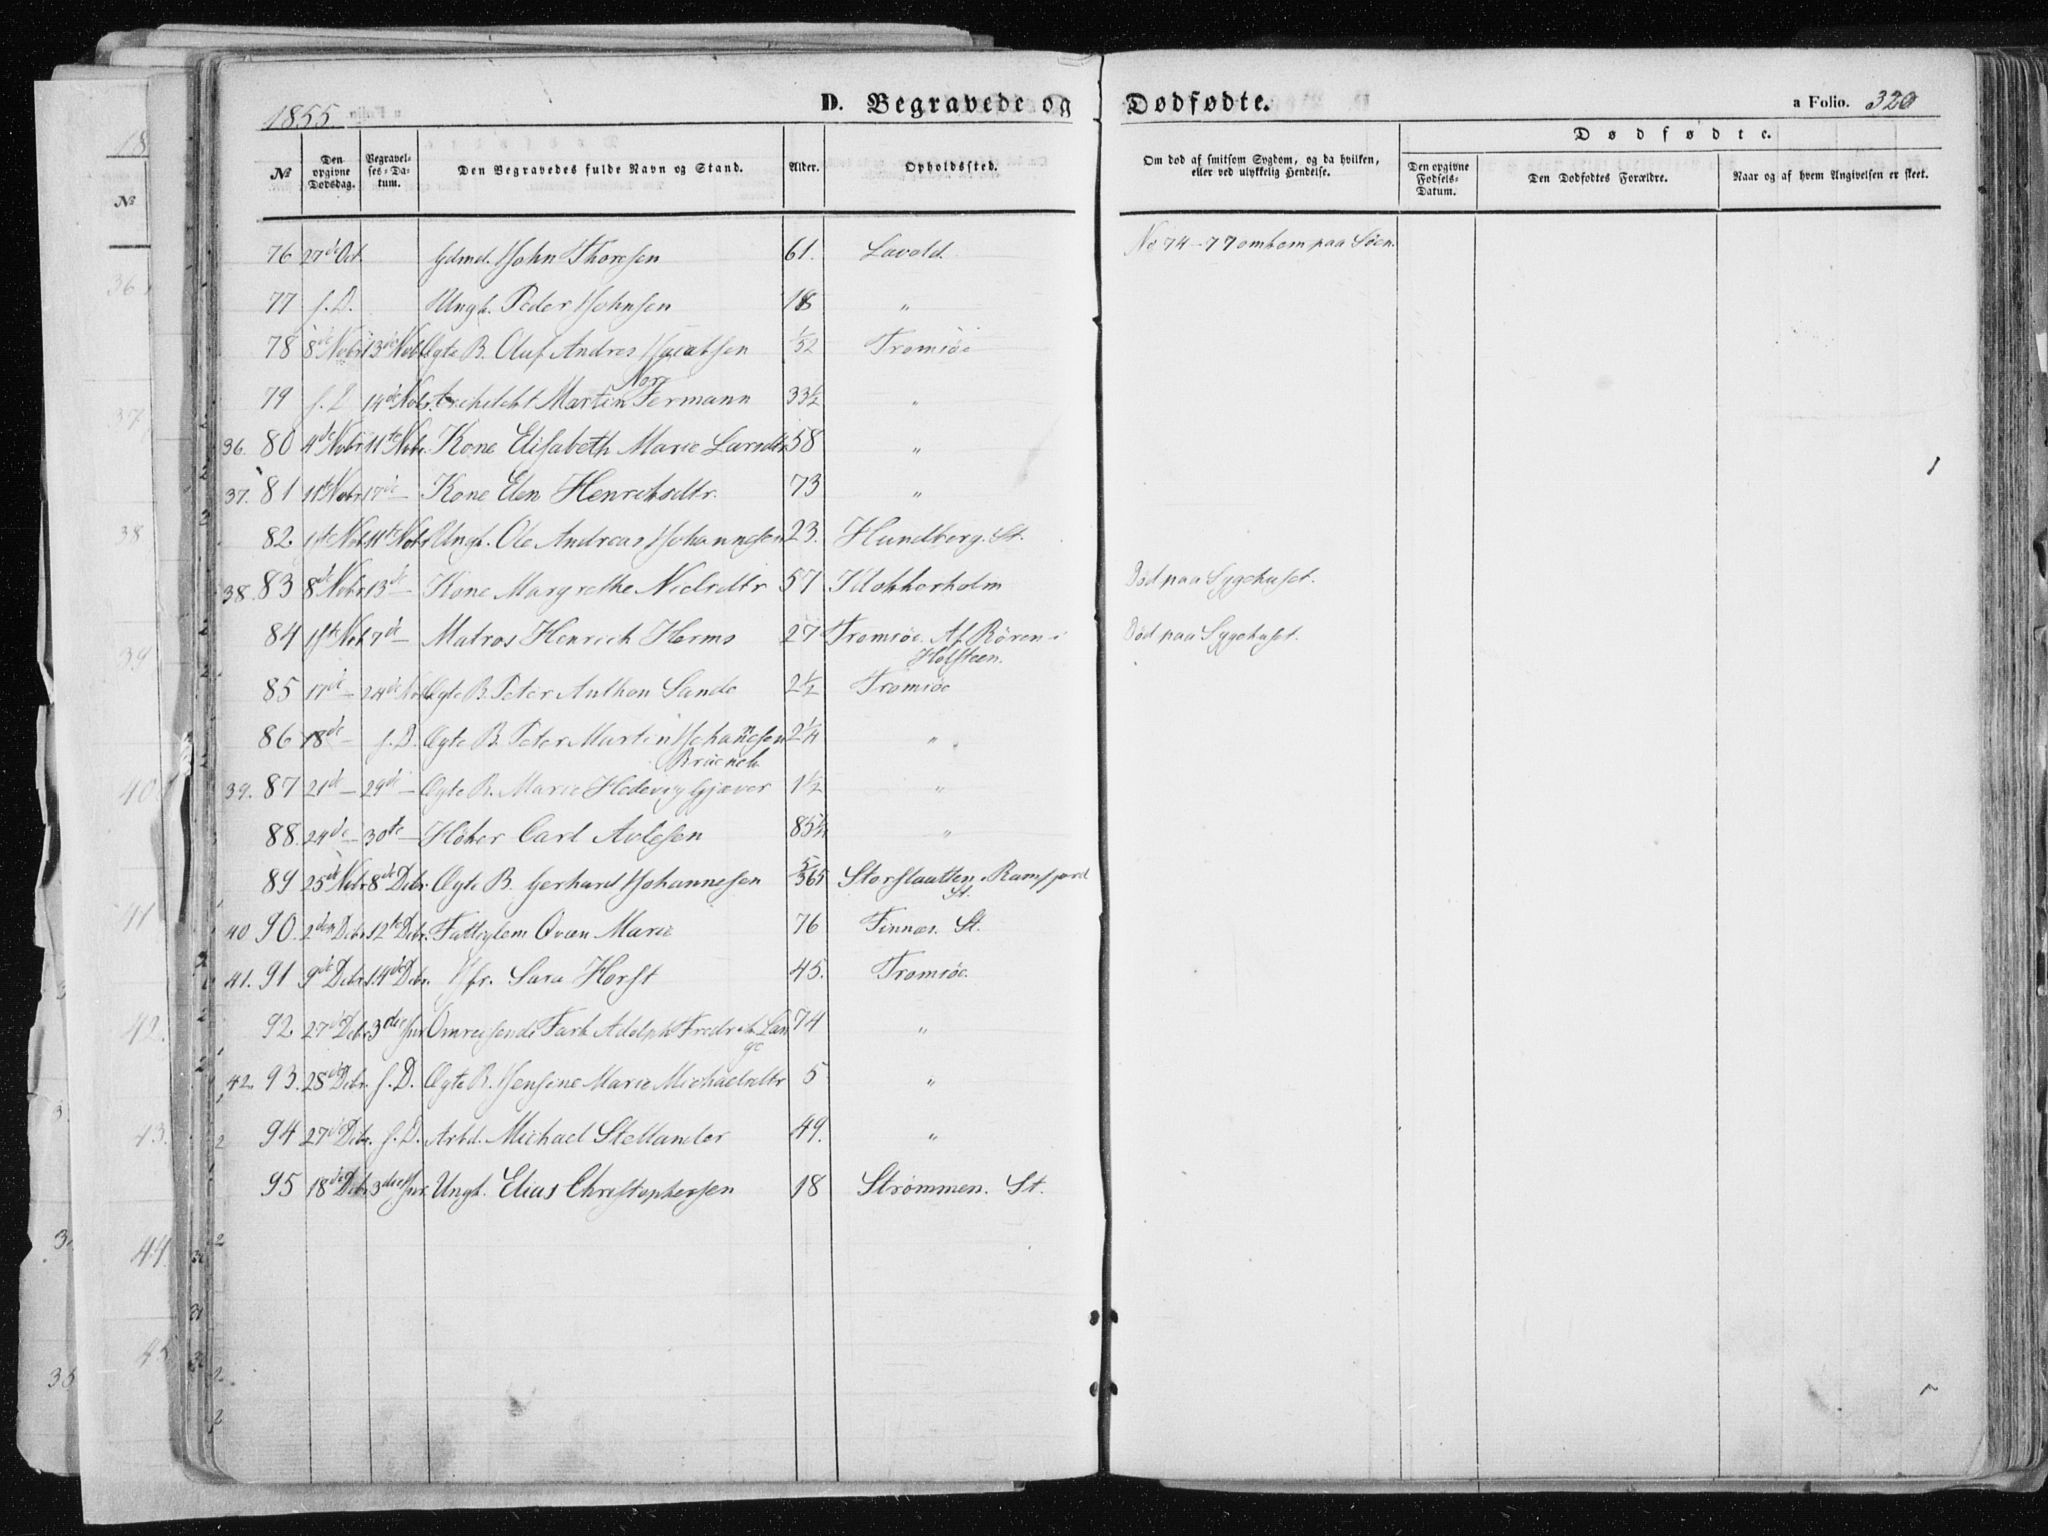 1855.
D. Begravede og Dødfødte.
a Folio. 320
Dødfødte.
№
Den opgivne Dødsdag.
Begravelses-Datum.
Den Begravedes fulde Navn og Stand.
Alder.
Opholdssted.
Om død af smitsom Sygdom, og da hvilken, eller ved ulykkelig Hendelse.
Den opgivne Fødsels-Datum.
Den Dødfødtes Forældre.
Naar og af hvem Angivelsen er skeet.
76 27de Oct. Gdmd. John Thoresen 61. Lavold. No 74-77 omkom paa Søen.
77 s. D. Ungk. Peder Johnsen 18 "
78 8de Nobr 13de Nobr Ægte B. Oluf Andreas Jacobsen 1/52 Tromsøe
79 s. D 14de Nobr. Architekt Martin Nor Fermann 33½ "
36. 80 4de Nobr 11te Nobr. Kone Elisabeth Marie Larsdtr 58 "
37. 81 11te Nobr 17de — Kone Elen Henriksdtr. 73 "
82. 1ste Nobr 11te Nobr Ungk. Ole Andreas Johannesen 23. Hundberg. St.
38. 83 8de Nobr 13de — Kone Margrethe Nielsdtr 57 Klokkerholm Død paa Sygehuset.
84 1ste Nobr 7de — Matros Henrich Herms 27 Tromsøe. Af Bören i Holsteen. Død paa Sygehuset.
85 17de — 24de Nobr Ægte B. Peter Anthon Sande 2½ Tromsøe
86 18de — s. D. Ægte B. Peter Martin Johannesen 2¼ "
39. 87 21de — 29de — Ægte B. Marie Hedevig Gjæver 1½ "
88. 24de — 30te — Høker Carl Avlesen 85½ "
89 25de Nobr 8de Debr. Ægte B. Gerhard Johannesen 5/365 Storslaatten. Ramfjord St.
40 90. 2den Debr. 12te Debr. Fattiglem Qvæn Marie 76 Finnæs. St.
41. 91 9de Debr. 14de Debr. Jfr. Sara Horst 45. Tromsøe.
92 27de Debr. 3die Jnr. Omreisende Fark Adolph Fredrik Lange 74 "
42. 93. 28de Debr. s. D. Ægte B. Jensine Marie Michaelsdtr 5 "
94 27de Debr. s. D. Arbd. Michael Stellander 49. "
95 18de Debr. 3die Jnr. Ungk. Elias Christophersen 18 Strømmen. St.